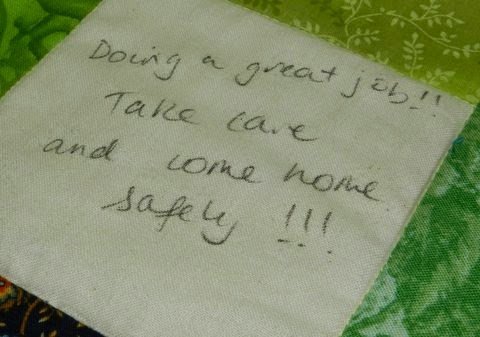 Doing a great job!!
Take care
and come home
safely !!!